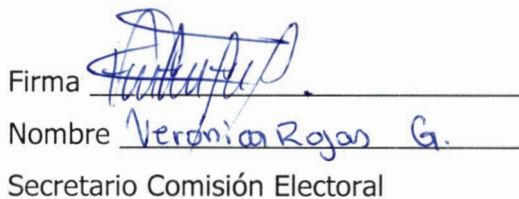 Firma
Nombre Verónica Rojas G.
Secretario Comisión Electoral